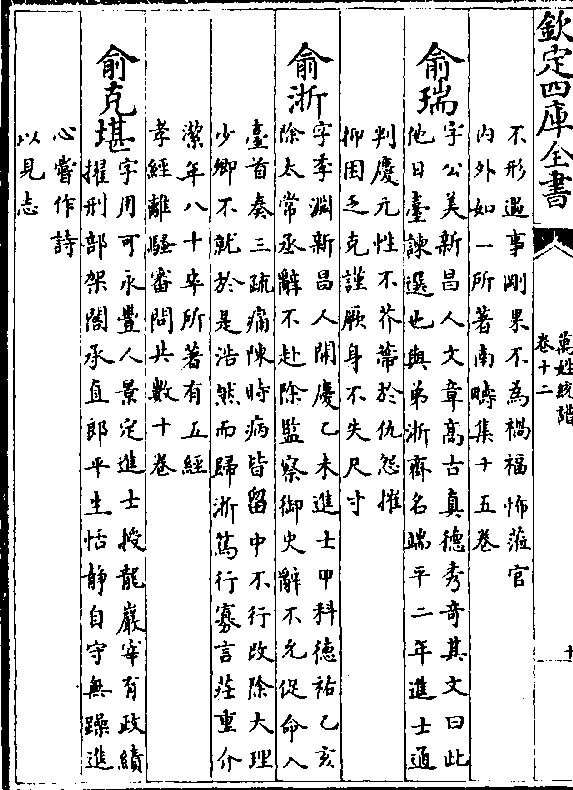 欽定四庫全書
萬姓統譜
卷十二
十
不形遇事剛果不為禍福怖蒞官
内外如一所著南疇集十五卷
俞瑞
字公美新昌人文章高古真德秀奇其文曰此
他日臺諫選也與弟浙齊名端平二年進士通
判慶元性不芥蔕於仇怨摧
抑困乏克謹厥身不失尺寸
俞浙
字季淵新昌人開慶乙未進士甲科德祐乙亥
除太常丞辭不赴除監察御史辭不允促命入
臺首奏三疏痛陳時病皆留中不行改除大理
少卿不就於是浩然而歸浙篤行寡言莊重介
潔年八十卒所著有五經
孝經離騷審問共數十卷
俞克堪
字用可永豐人景定進士授龍巖宰有政績
擢刑部架閣承直郎平生恬静自守無躁進
心嘗作詩
以見志